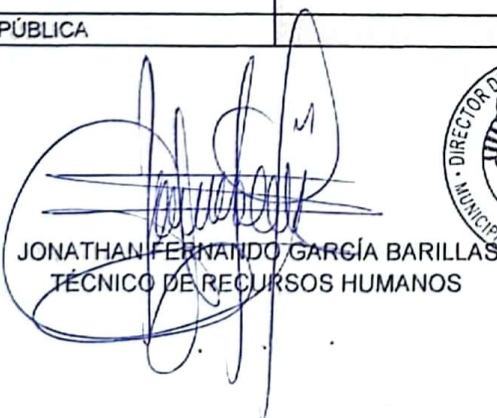 PÚBLICA
JONATHAN FERNANDO GARCÍA BARILLAS
TÉCNICO DE RECURSOS HUMANOS
DIRECTOR D
MUNICIP